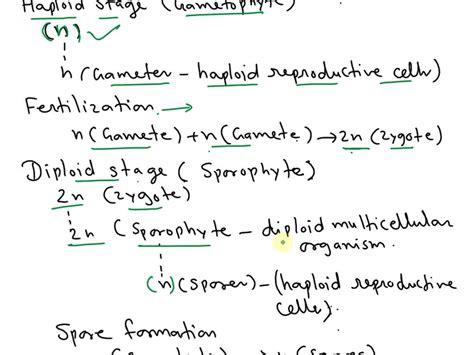 Haploid stage (Gametophyte)
(n) ✓
n (Gameter - haploid reproductive cells)
Fertilization →
n (Gamete) + n (Gamete) → 2n (Zygote)
Diploid stage ( Sporophyte)
2n (Zygote)
2n ( Sporophyte - diploid multicellular
organism.
(n) (Spores) - (haploid reproductive
cells).
Spore formation